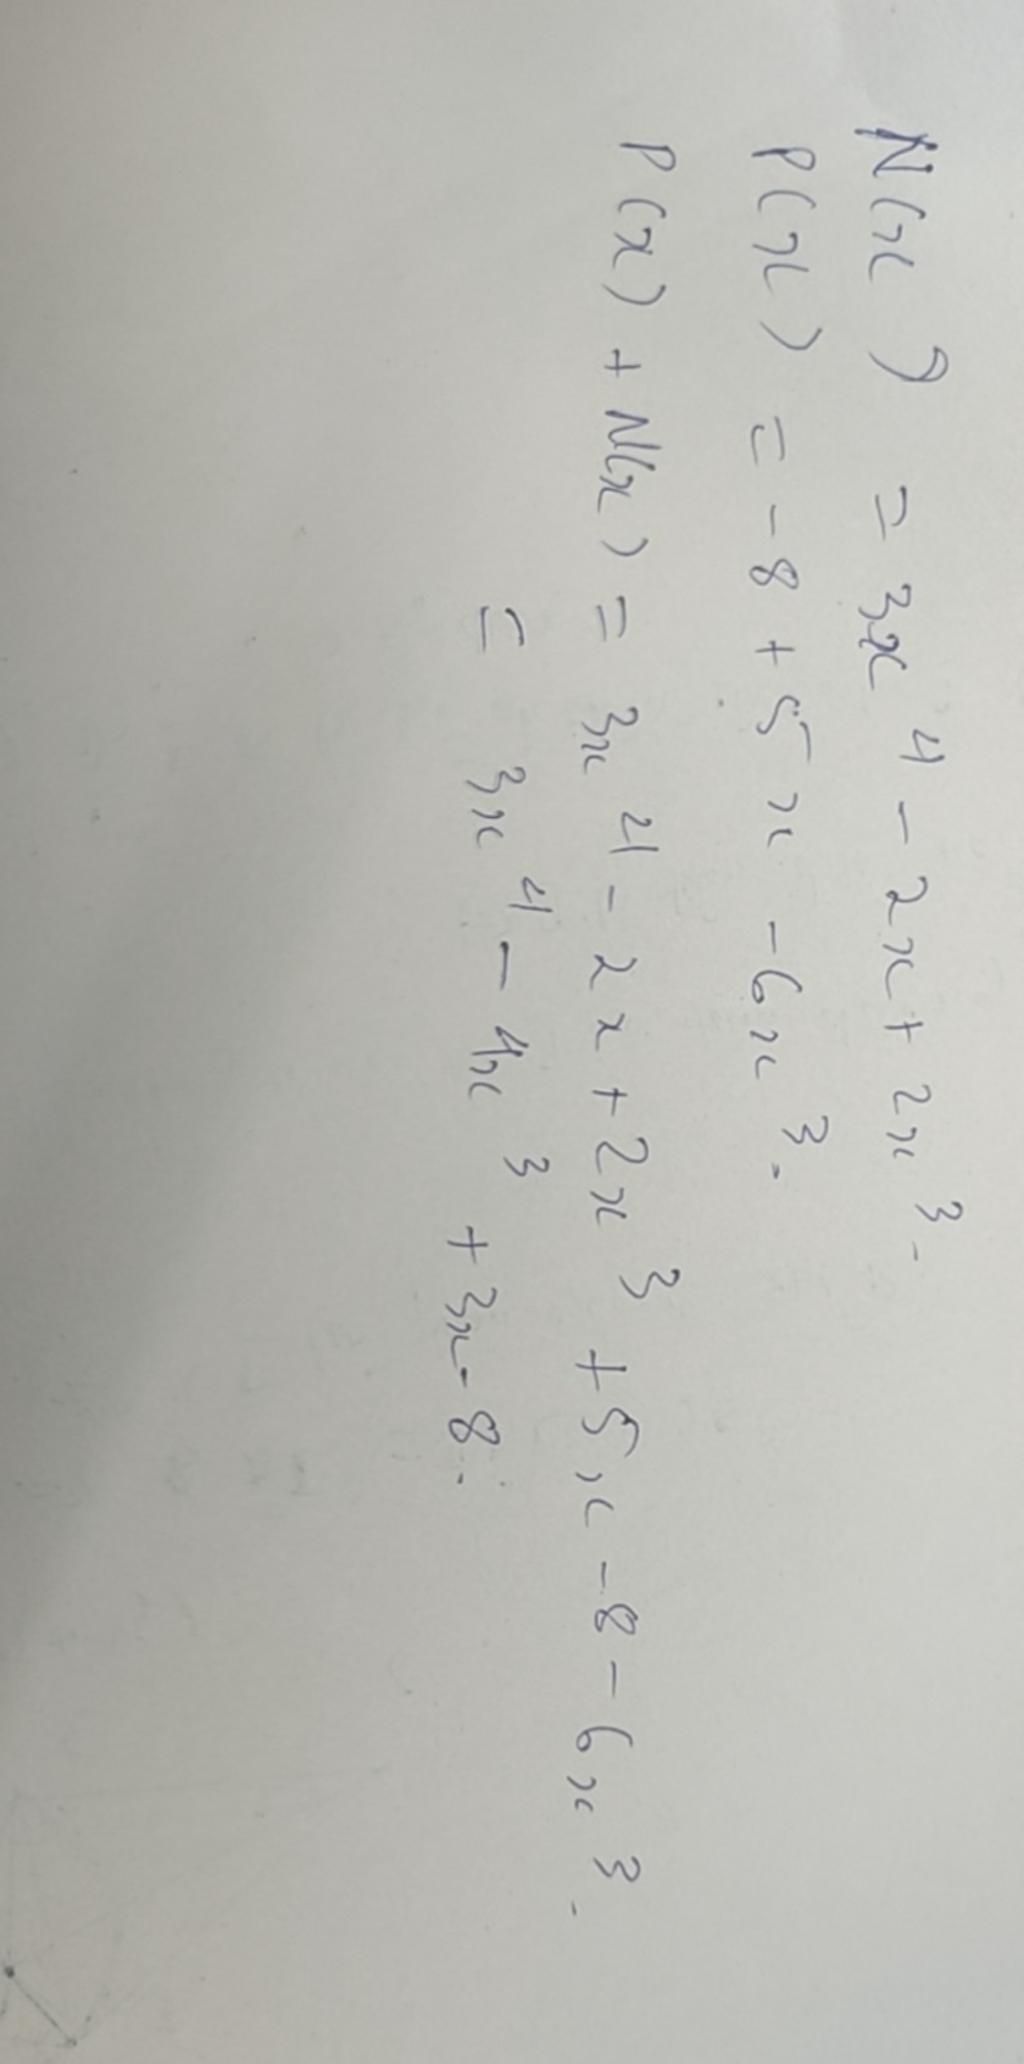 N(x) = 3x⁴ - 2x + 2x³.
P(x) = -8 + 5x - 6x³.
P(x) + N(x) = 3x⁴ - 2x + 2x³ + 5x - 8 - 6x³.
= 3x⁴ - 4x³ + 3x - 8.